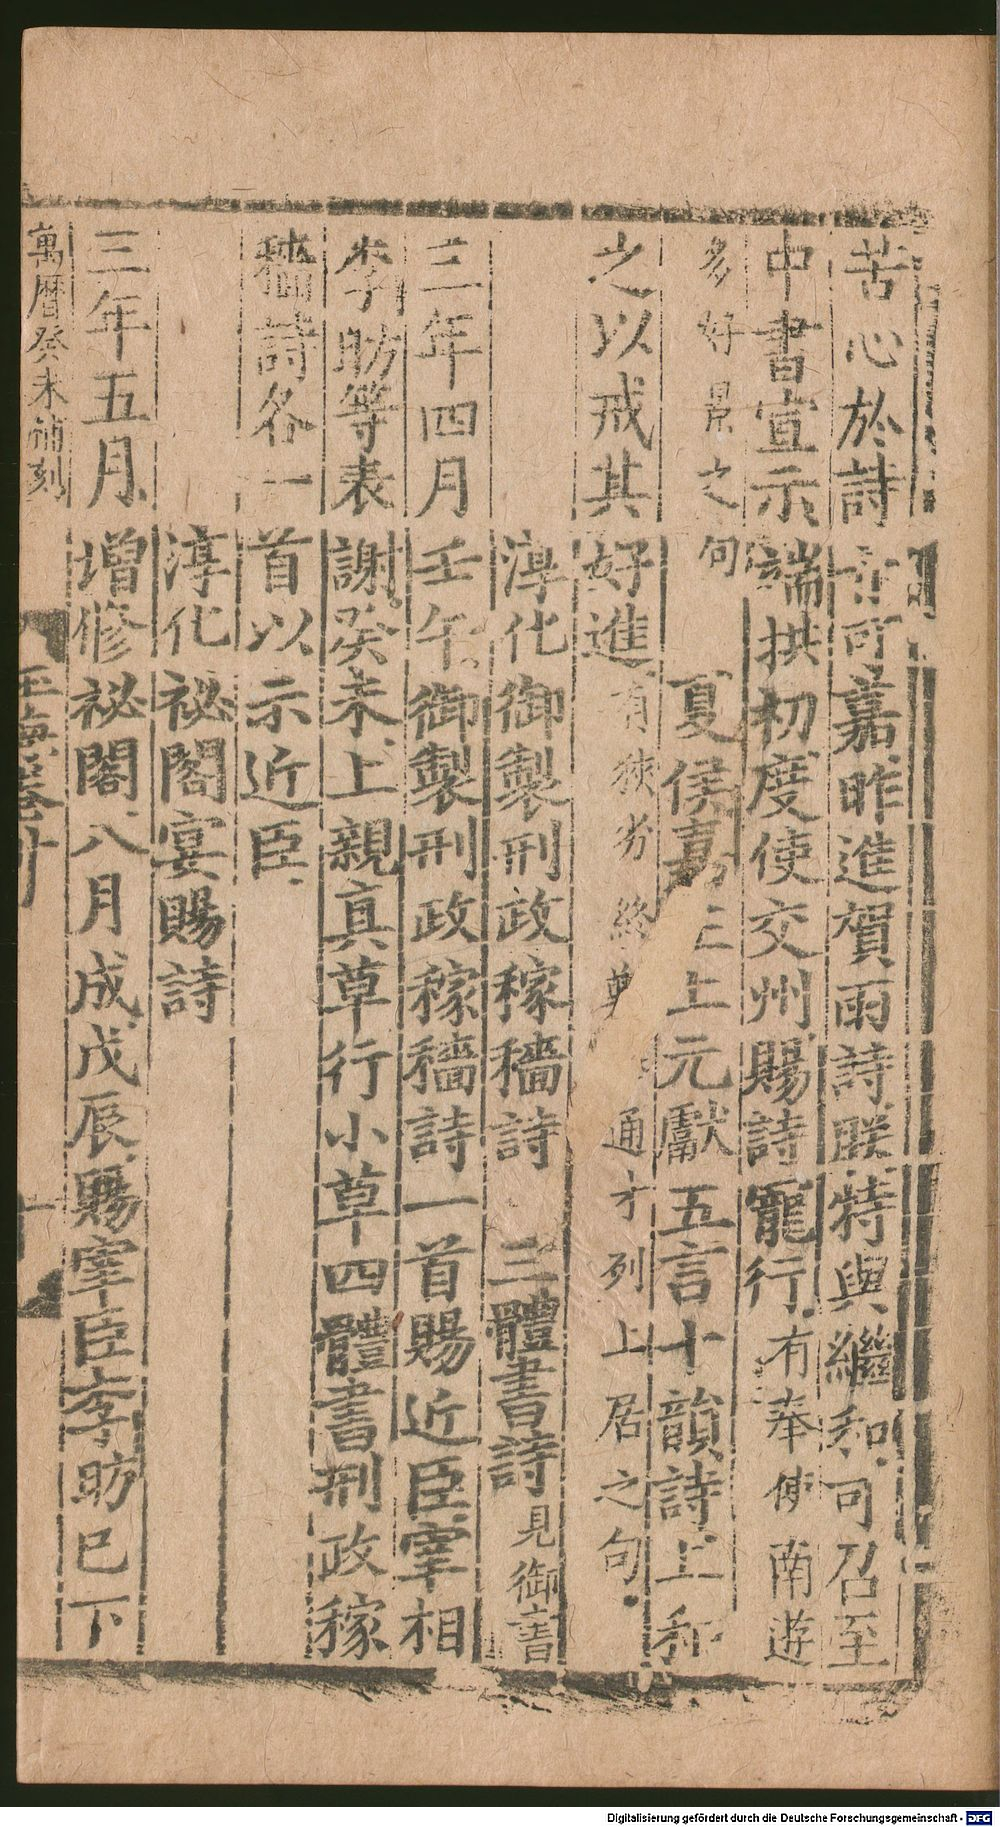 苦心於詩亦可嘉昨進賀雨詩朕特與繼和可召至
中書宣示端拱初度使交州賜詩寵行有奉使南遊
多好景之句夏侯嘉正上元獻五言十韻詩上和
之以戒其好進有狹劣終通才列上居之句
淳化御製刑政稼穡詩 三體書詩見御書
三年四月壬午御製刑政稼穡詩一首賜近臣宰相
李昉等表謝癸未上親真草行小草四體書刑政稼
穡詩各一首以示近臣
淳化祕閣宴賜詩
三年五月增修祕閣八月成戊辰賜宰臣李昉已下
萬曆癸未補刻
玉海卷卅
Digitalisierung gefördert durch die Deutsche Forschungsgemeinschaft - DFG